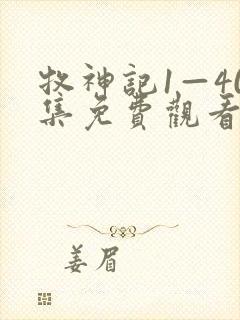 牧神記1—40
集免費觀看
姜眉